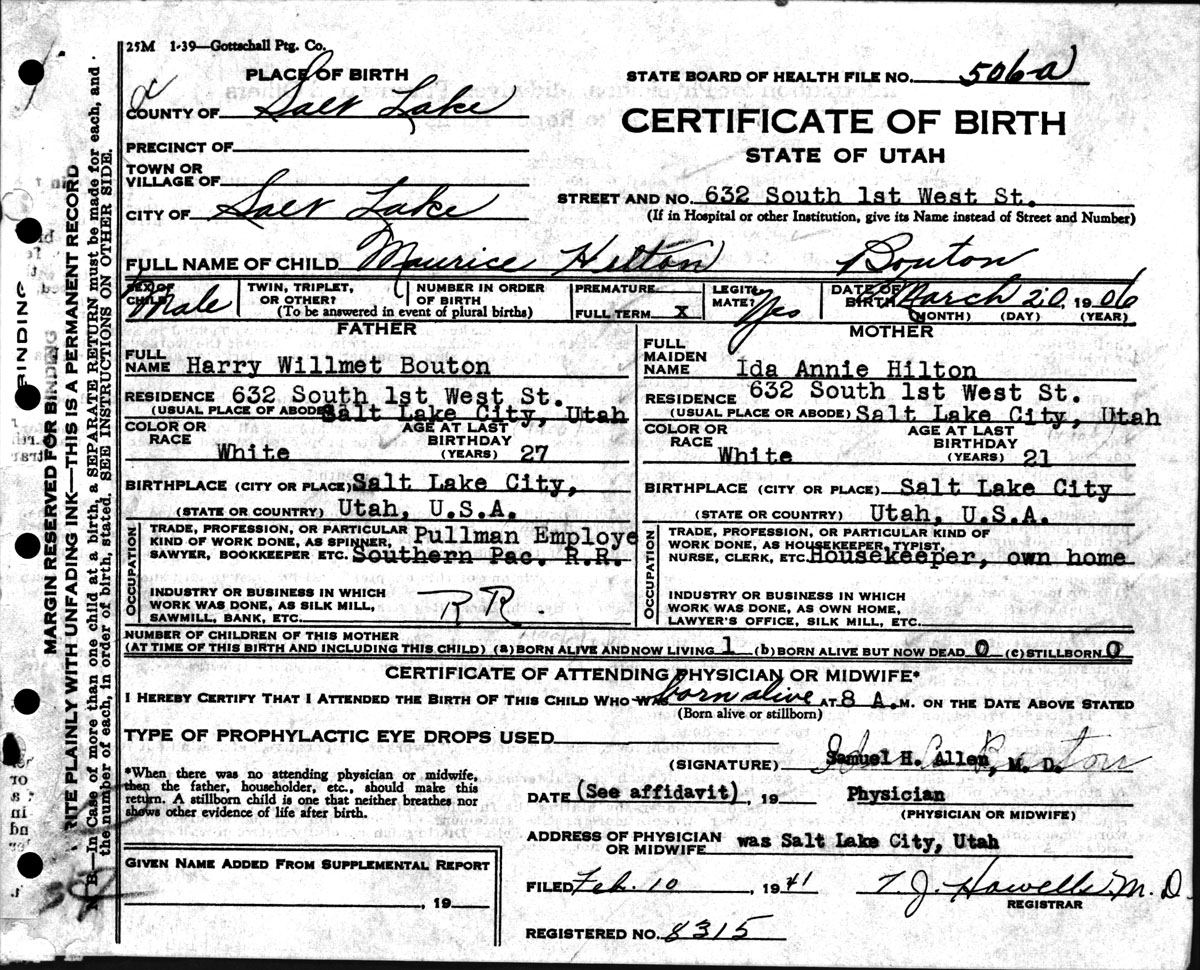 25M 1-39—Gottschall Ptg. Co.
PLACE OF BIRTH
STATE BOARD OF HEALTH FILE NO. 506a
COUNTY OF Salt Lake
CERTIFICATE OF BIRTH
STATE OF UTAH
PRECINCT OF
TOWN OR
VILLAGE OF
CITY OF Salt Lake
STREET AND NO. 632 South 1st West St.
(If in Hospital or other Institution, give its Name instead of Street and Number)
FULL NAME OF CHILD Maurice Hilton Bouton
SEX OF CHILD Male
TWIN, TRIPLET, OR OTHER?
NUMBER IN ORDER OF BIRTH
(To be answered in event of plural births)
PREMATURE
FULL TERM X
LEGITIMATE? Yes
DATE OF BIRTH March 20, 1906
(MONTH) (DAY) (YEAR)
FATHER
FULL NAME Harry Willmet Bouton
RESIDENCE 632 South 1st West St.
(USUAL PLACE OF ABODE) Salt Lake City, Utah
COLOR OR RACE White
AGE AT LAST BIRTHDAY (YEARS) 27
BIRTHPLACE (CITY OR PLACE) Salt Lake City,
(STATE OR COUNTRY) Utah, U.S.A.
OCCUPATION
TRADE, PROFESSION, OR PARTICULAR Pullman Employe
KIND OF WORK DONE, AS SPINNER,
SAWYER, BOOKKEEPER ETC. Southern Pac. R.R.
INDUSTRY OR BUSINESS IN WHICH
WORK WAS DONE, AS SILK MILL,
SAWMILL, BANK, ETC. R R.
MOTHER
FULL MAIDEN NAME Ida Annie Hilton
RESIDENCE 632 South 1st West St.
(USUAL PLACE OR ABODE) Salt Lake City, Utah
COLOR OR RACE White
AGE AT LAST BIRTHDAY (YEARS) 21
BIRTHPLACE (CITY OR PLACE) Salt Lake City
(STATE OR COUNTRY) Utah, U.S.A.
OCCUPATION
TRADE, PROFESSION, OR PARTICULAR KIND OF
WORK DONE, AS HOUSEKEEPER, TYPIST,
NURSE, CLERK, ETC. Housekeeper, own home
INDUSTRY OR BUSINESS IN WHICH
WORK WAS DONE, AS OWN HOME,
LAWYER'S OFFICE, SILK MILL, ETC.
NUMBER OF CHILDREN OF THIS MOTHER
(AT TIME OF THIS BIRTH AND INCLUDING THIS CHILD) (a) BORN ALIVE AND NOW LIVING 1 (b) BORN ALIVE BUT NOW DEAD 0 (c) STILLBORN 0
CERTIFICATE OF ATTENDING PHYSICIAN OR MIDWIFE*
I HEREBY CERTIFY THAT I ATTENDED THE BIRTH OF THIS CHILD WHO WAS born alive AT 8 A.M. ON THE DATE ABOVE STATED
(Born alive or stillborn)
TYPE OF PROPHYLACTIC EYE DROPS USED
(SIGNATURE) Samuel H. Allen, M. D.
*When there was no attending physician or midwife,
then the father, householder, etc., should make this
return. A stillborn child is one that neither breathes nor
shows other evidence of life after birth.
DATE (See affidavit), 19 Physician
(PHYSICIAN OR MIDWIFE)
ADDRESS OF PHYSICIAN OR MIDWIFE was Salt Lake City, Utah
GIVEN NAME ADDED FROM SUPPLEMENTAL REPORT
, 19
FILED Feb. 10, 1941 T. J. Howells M. D.
REGISTRAR
REGISTERED NO. 8315
BINDING
MARGIN RESERVED FOR BINDING
RITE PLAINLY WITH UNFADING INK—THIS IS A PERMANENT RECORD
B.—In Case of more than one child at a birth, a SEPARATE RETURN must be made for each, and
the number of each, in order of birth, stated. SEE INSTRUCTIONS ON OTHER SIDE.